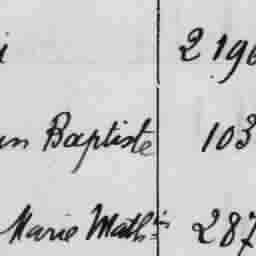 i 2 196
un Baptiste 103
Marie Math.in 287